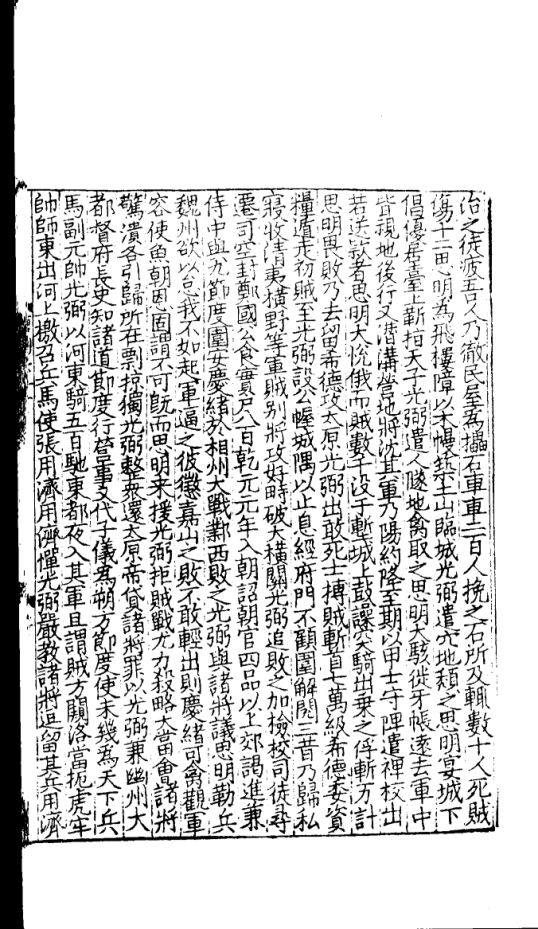 治之徒疲吾人乃徹民屋爲擂石車車二百人挽之石所及輒數十人死賊
傷十二思明爲飛樓障以木幔築土山臨城光弼遣穴地頹之思明宴城下
倡優居臺上靳指天子光弼遣人隧地禽取之思明大駭徙牙帳遠去軍中
皆視地後行又潛溝營地將沈其軍乃陽約降至期以甲士守陴遣裨校出
若送款者思明大悅俄而賊數千没于塹城上鼓譟突騎出乗之俘斬万計
思明畏敗乃去留希德攻太原光弼出敢死士搏賊斬首七萬級希德委資
糧遁走初賊至光弼設公幄城隅以止息經府門不顧圍解閱三昔乃歸私
寢收清夷橫野等軍賊别將攻好畤破大橫關光弼追敗之加檢校司徒尋
遷司空封鄭國公食實戶八百乾元元年入朝詔朝官四品以上郊謁進兼
侍中與九節度圍安慶緒於相州大戰鄴西敗之光弼與諸將議思明勒兵
魏州欲以怠我不如起軍逼之彼懲嘉山之敗不敢輕出則慶緒可禽觀軍
容使魚朝恩固謂不可旣而思明來援光弼拒賊戰尤力殺略大當會諸將
驚潰各引歸所在剽掠獨光弼整衆還太原帝貸諸將罪以光弼兼幽州大
都督府長史知諸道節度行營事又代子儀爲朔方節度使未幾爲天下兵
馬副元帥光弼以河東騎五百馳東都夜入其軍且謂賊方闚洛當扼虎牢
帥師東出河上檄召兵馬使張用濟用濟憚光弼嚴教諸將逗留其兵用濟